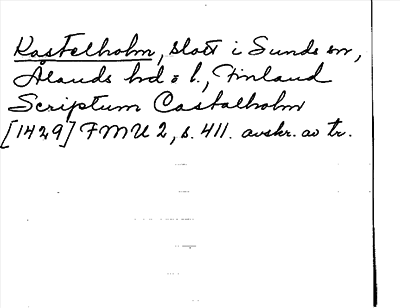 Kastelholm, slott i Sunds sn,
Ålands hd o l., Finland
Scriptum Castalholm
[1429] FMU 2, s. 411. avskr. av tr.